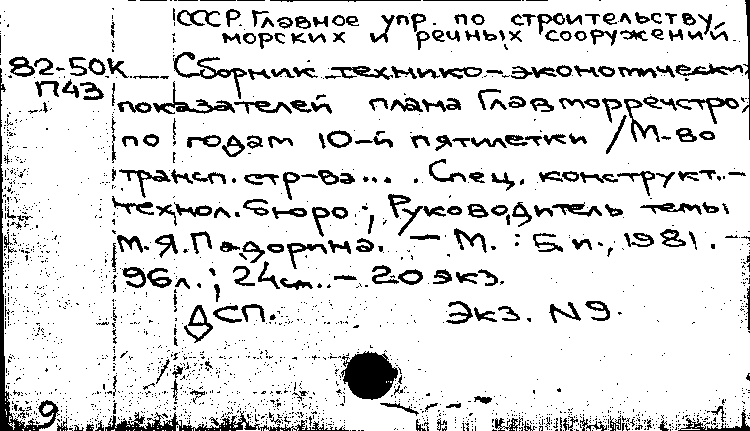 СССР. Главное упр. по строительству
морских и речных сооружений.
82-50К Сборник технико-экономически
П43
показателей плана Главморречстро
по годам 10-й пятилетки / М-во
трансп. стр-ва... . Спец. конструкт.-
технол. бюро ; Руководитель темы
М.Я. Падорина. — М. : Б.и., 1981. -
96л. ; 24см. - 20 экз.
ДСП. Экз. N9.
9